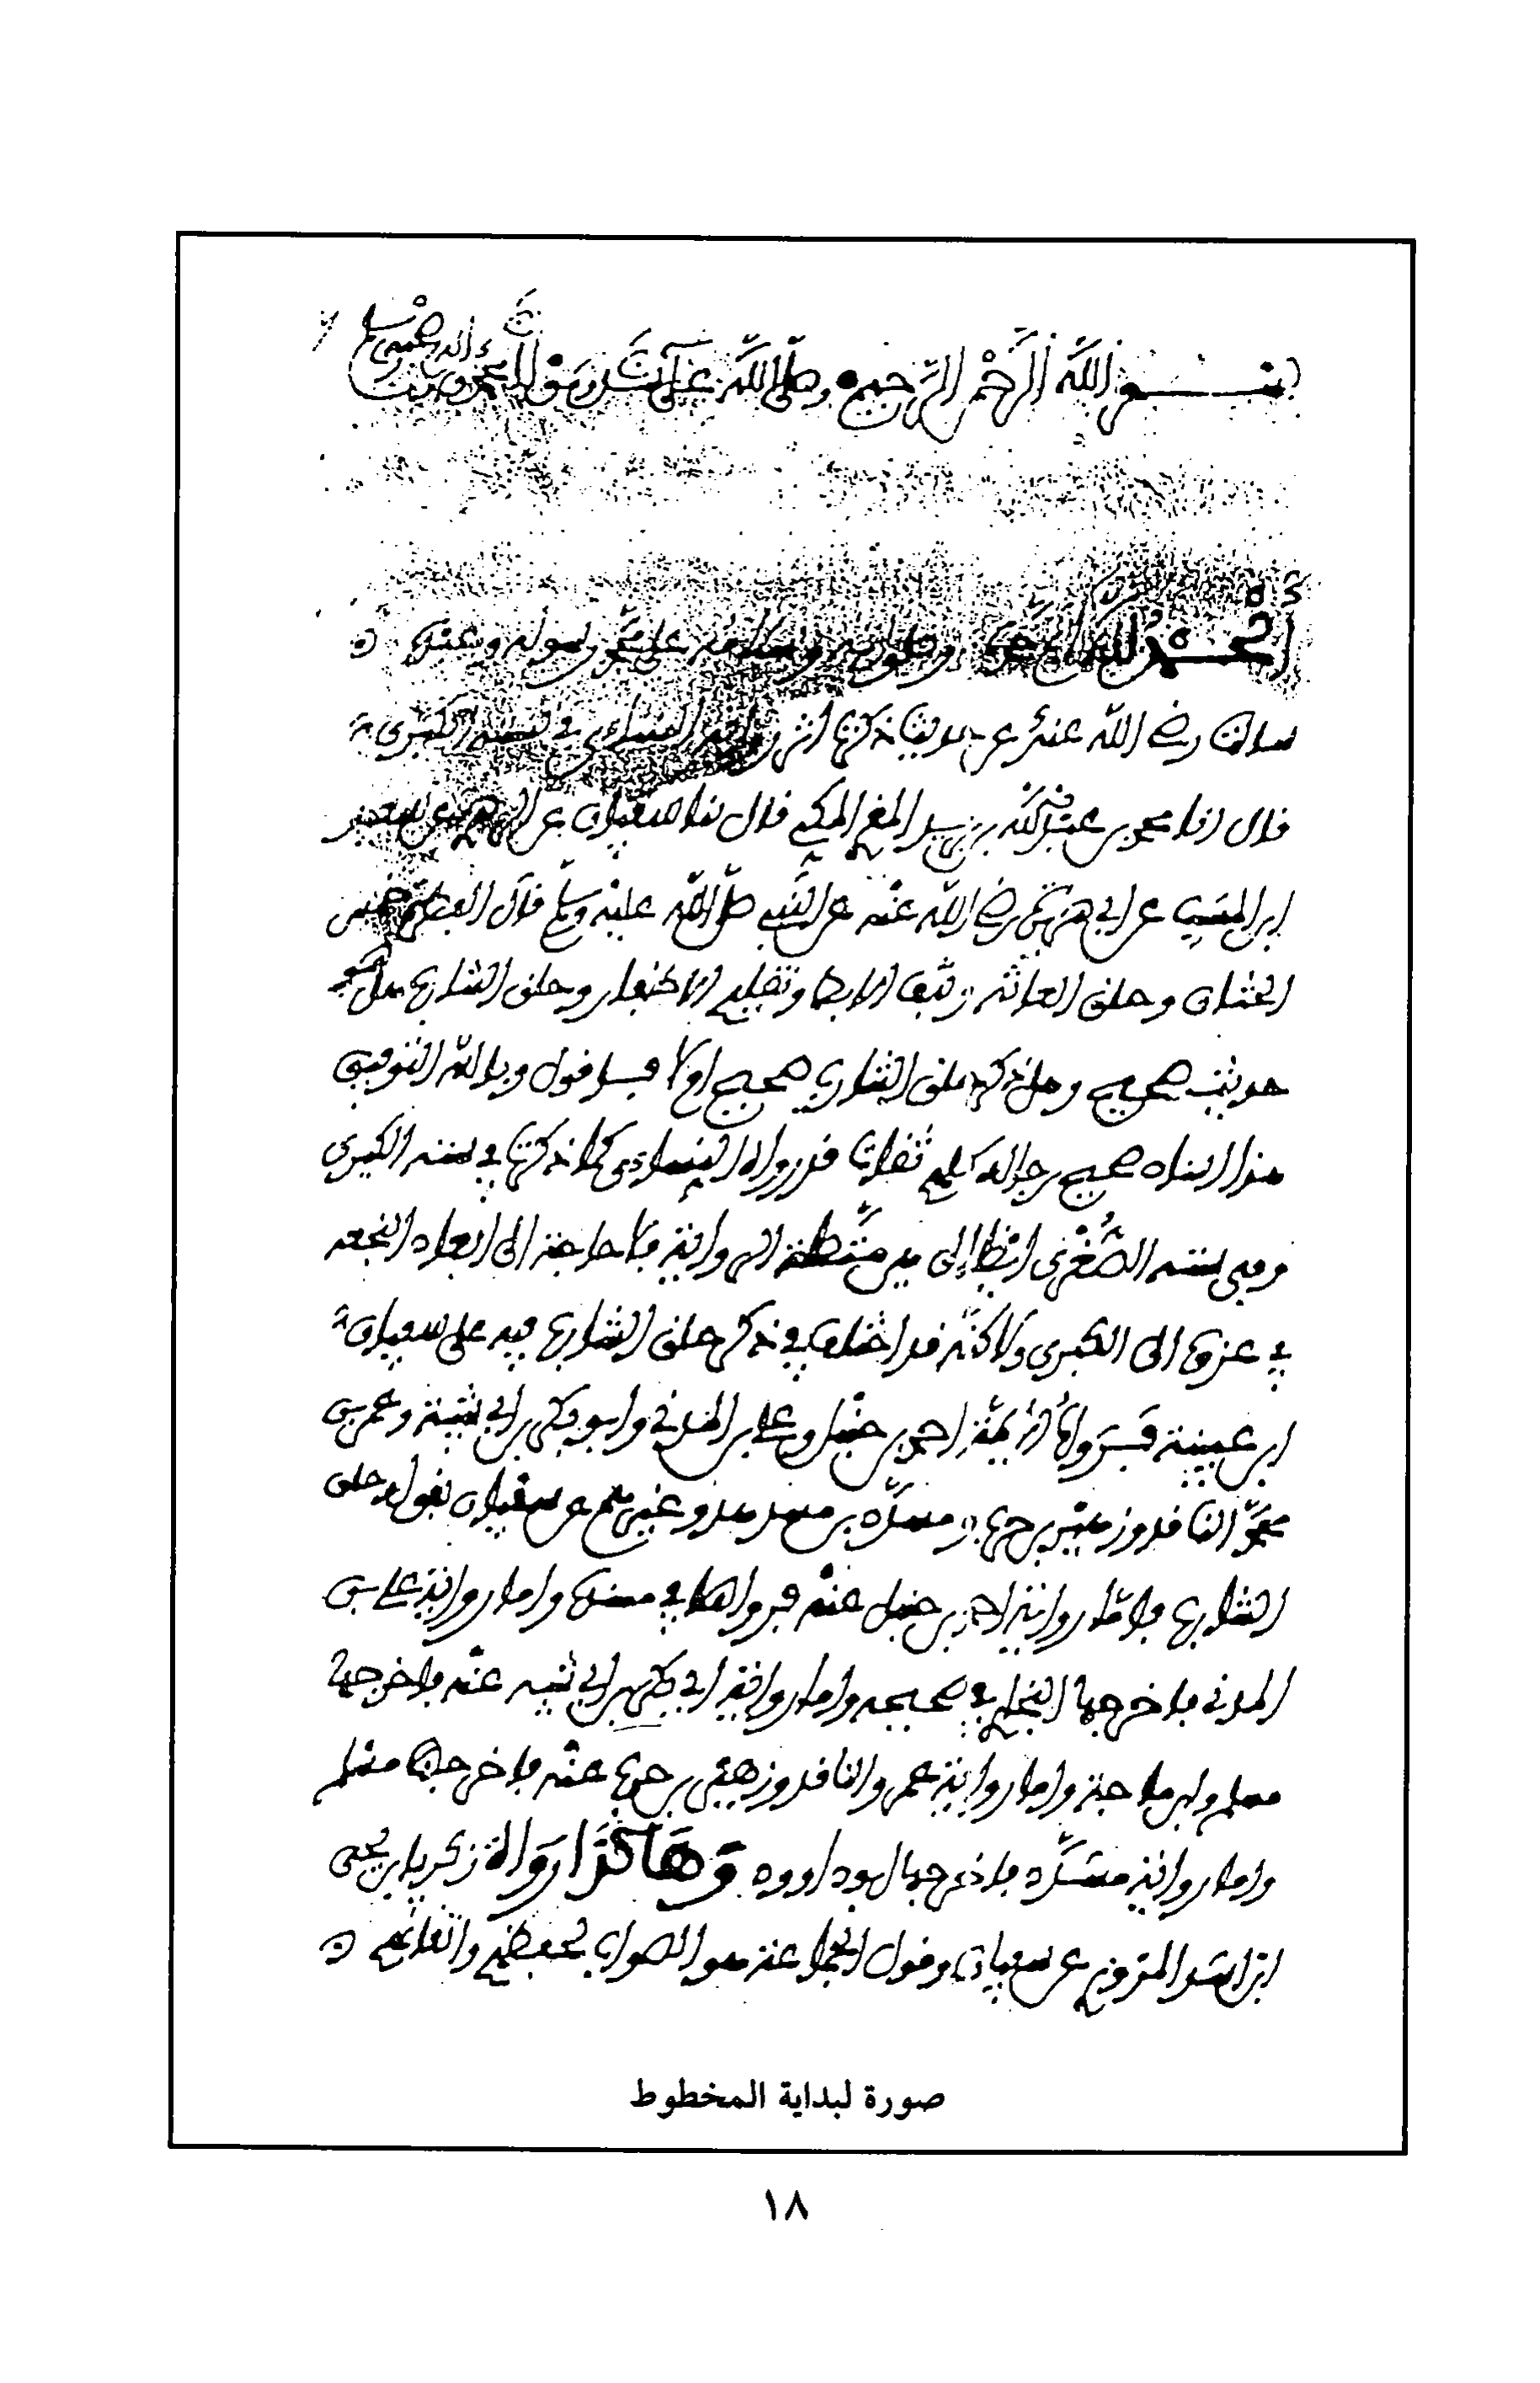 بسم الله الرحمن الرحيم وصلى الله على سيدنا ومولانا محمد وعلى آله وصحبه وسلم
الحمد لله على محمد رسوله وعبده
سالت رضي الله عنك عن حديث ذكرت النساءي في سننه الكبرى
قال انا محمد بن عبد الله بن يزيد المقرئ المكي قال نا سفيان عن الزهري عن سعيد
ابن المسيب عن ابي هريرة رضي الله عنه عن النبي صلى الله عليه وسلم قال الفطرة خمس
الختان وحلق العانة ونتف الابط وتقليم الاظفار وحلق الشارب هل هو
حديث صحيح وهل ذكر حلق الشارب صحيح او لا فاقول وبالله التوفيق
هذا اسناد صحيح رجاله كلهم ثقات قد رواه النساءي كما ذكرت في سننه الكبرى
وفي سننه الصغرى ايضا الرواية فلا حاجة الى ابعاد النجعه
في عزوه الى الكبرى ولاكنه قد اختلف في ذكر حلق الشارب فيه على سفيان
ابن عيينة فرواه الائمة احمد بن حنبل وعلي بن المديني وابو بكر بن ابي شيبة وعمرو بن
محمد الناقد وزهير بن حرب ومسدد بن مسرهد وغيرهم عن سفيان حلق
الشارب فاما رواية احمد بن حنبل عنه فرواها في مسنده واما رواية علي بن
المديني فاخرجها البخاري في صحيحه واما رواية ابي بكر بن ابي شيبه عنه فاخرجها
مسلم وابن ماجة واما رواية عمرو الناقد وزهير بن حرب عنه فاخرجها مسلم
واما رواية مسدد فاخرجها ابو داوود وهاكذا رواه زكريا بن يحيى
ابن اسد المروزي عن سفيان وقول الجماعة هو الصواب لحفظهم واتقانهم
صورة لبداية المخطوط
١٨